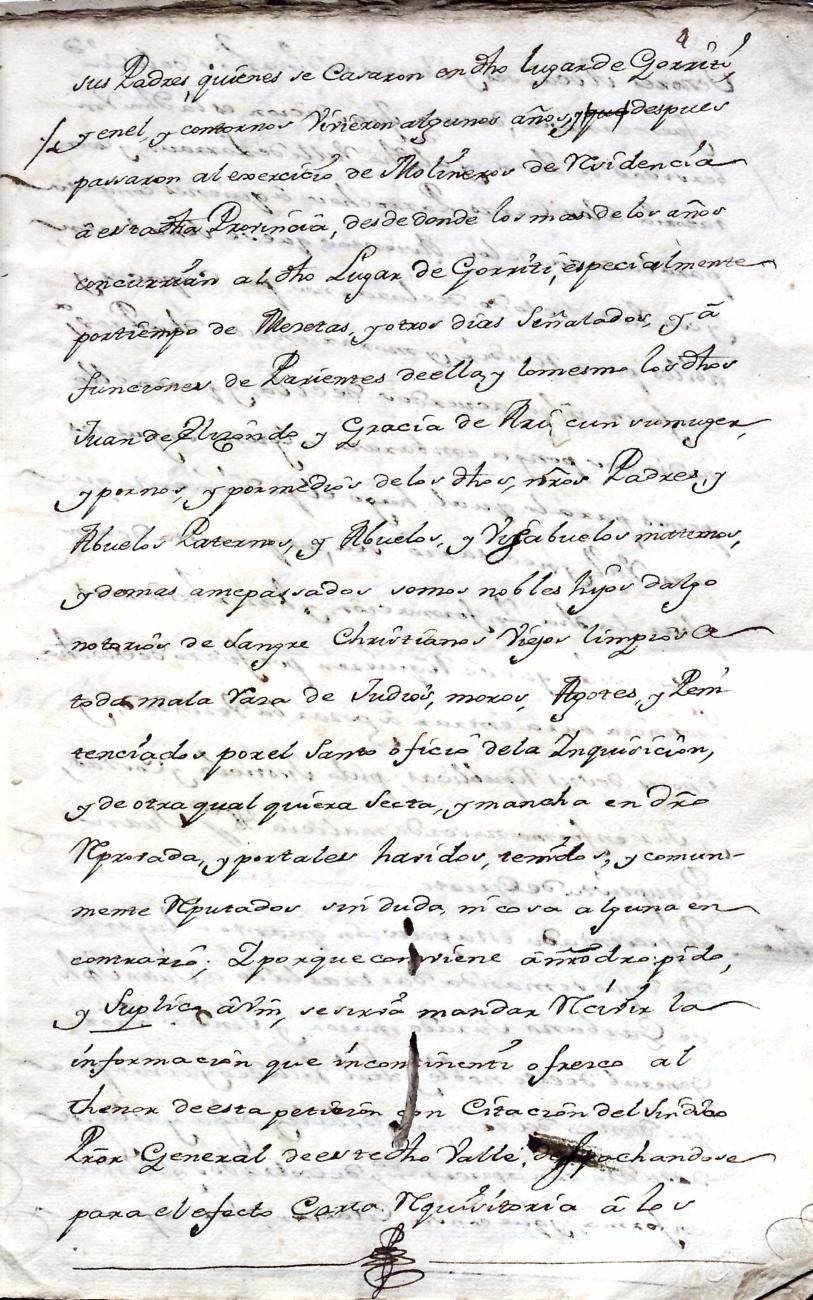 4
sus Padres, quienes se Casaron en dho lugar de Gorriti,
y en el, y contornos Vivieron algunos años, y que despues
passaron al exercicio de Molineros de Rsidencia
â esta dha Provincia, desde donde los mas de los años
concurrian al dho Lugar de Gorriti, especialmente
por tiempo de Mezetas, y otros dias Señalados, y â
funciones de Parientes de ella, y lo mesmo los dhos
Juan de Elizondo y Gracia de su muger,
y por nos, y por medios de los dhos, nros Padres, y
Abuelos Paternos, y Abuelos, y Visabuelos maternos,
y demas antepassados somos nobles hijos dalgo
notorios de Sangre Christianos Viejos limpios de
toda mala Raza de Judios, moros, Agotes, y Peni
tenciados por el Santo oficio de la Inquisicion,
y de otra qual quiera Secta, y mancha en dro
Rprovada, y por tales havidos, tenidos, y comun-
mente Rputados sin duda, ni cosa alguna en
contrario; Y porque conviene â nro dro pido,
y Suplico â Vm, se sirva mandar Rcivir la
informacion que incontinenti ofresco al
thenor de esta peticion con Citacion del Sindico
Pror General de este dho Valle, despachandose
para el efecto Carta Rquisitoria â los